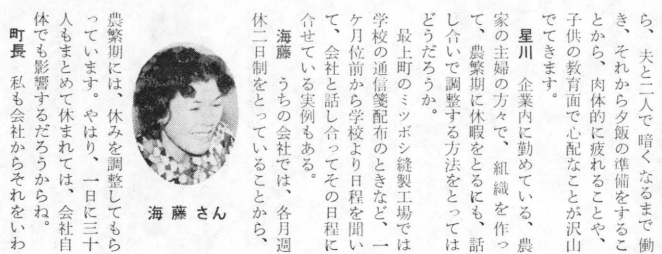 ら、夫と二人で暗くなるまで働
き、それから夕飯の準備をするこ
とから、肉体的に疲れることや、
子供の教育面で心配なことが沢山
でてきます。
星川　企業内に勤めている、農
家の主婦の方々で、組織を作っ
て、農繁期に休暇をとるにも、話
し合いで調整する方法をとっては
どうだろうか。
最上町のミツボシ縫製工場では
学校の通信箋配布のときなど、一
ケ月位前から学校より日程を聞い
て、会社と話し合ってその日程に
合せている実例もある。
海藤　うちの会社では、各月週
休二日制をとっていることから、
海藤さん
農繁期には、休みを調整してもら
っています。やはり、一日に三十
人もまとめて休まれては、会社自
体でも影響するだろうからね。
町長　私も会社からそれをいわ